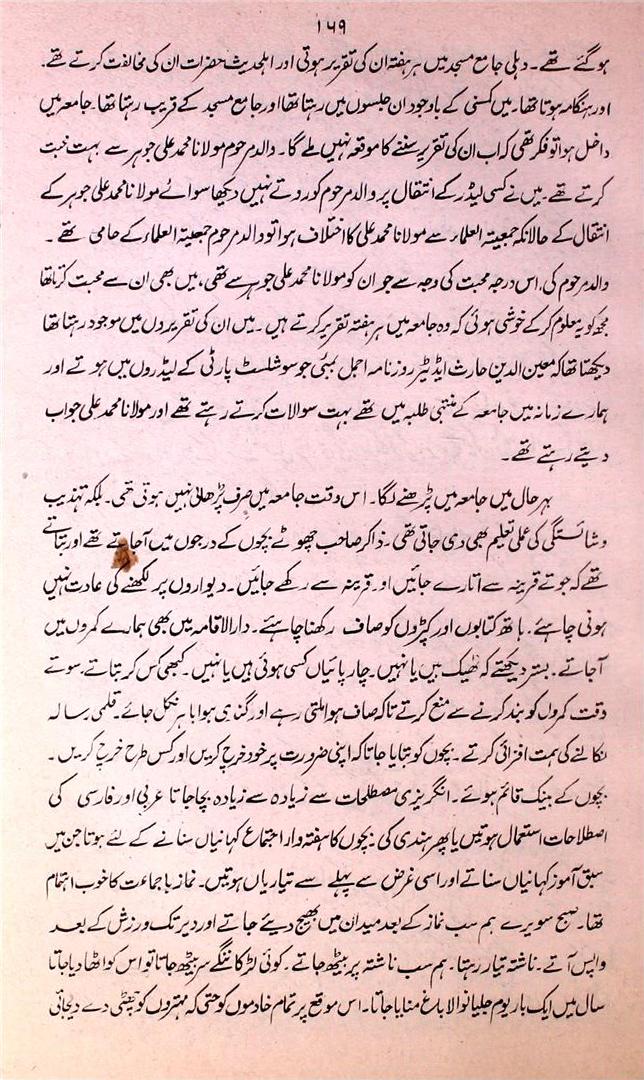 ۱۶۹
ہوگئے تھے۔ دہلی جامع مسجد میں ہر ہفتہ ان کی تقریر ہوتی اور اہلحدیث حضرات ان کی مخالفت کرتے تھے۔
اور ہنگامہ ہوتا تھا۔ میں کمسنی کے باوجود ان جلسوں میں رہتا تھا اور جامع مسجد کے قریب رہتا تھا۔ جامعہ میں
داخل ہوا تو فکر تھی کہ اب ان کی تقریر سننے کا موقعہ نہیں ملے گا۔ والد مرحوم مولانا محمد علی جوہر سے بہت محبت
کرتے تھے۔ میں نے کسی لیڈر کے انتقال پر والد مرحوم کو روتے نہیں دیکھا سوائے مولانا محمد علی جوہر کے
انتقال کے حالانکہ جمعیتہ العلماء سے مولانا محمد علی کا اختلاف ہوا تو والد مرحوم جمعیتہ العلماء کے حامی تھے۔
والد مرحوم کی اس درجہ محبت کی وجہ سے جو ان کو مولانا محمد علی جوہر سے تھی، میں بھی ان سے محبت کرتا تھا
مجھ کو یہ معلوم کر کے خوشی ہوئی کہ وہ جامعہ میں ہر ہفتہ تقریر کرتے ہیں۔ میں ان کی تقریروں میں موجود رہتا تھا
دیکھتا تھا کہ معین الدین حارث ایڈیٹر روزنامہ اجمل بمبئی جو سوشلسٹ پارٹی کے لیڈروں میں ہوتے اور
ہمارے زمانہ میں جامعہ کے منتہی طلبہ میں تھے بہت سوالات کرتے رہتے تھے اور مولانا محمد علی جواب
دیتے رہتے تھے۔
بہر حال میں جامعہ میں پڑھنے لگا۔ اس وقت جامعہ میں صرف پڑھائی نہیں ہوتی تھی۔ بلکہ تہذیب
و شائستگی کی عملی تعلیم بھی دی جاتی تھی۔ ذاکر صاحب چھوٹے بچوں کے درجوں میں آجاتے تھے اور بتاتے
تھے کہ جوتے قرینہ سے اتارے جائیں اور قرینہ سے رکھے جائیں۔ دیواروں پر لکھنے کی عادت نہیں
ہونی چاہئے۔ ہاتھ کتابوں اور کپڑوں کو صاف رکھنا چاہئے۔ دارالاقامہ میں بھی ہمارے کمروں میں
آجاتے۔ بستر دیکھتے کہ ٹھیک ہیں یا نہیں۔ چارپائیاں کسی ہوئی ہیں یا نہیں۔ کبھی کس کر بتاتے۔ سوتے
وقت کمروں کو بند کرنے سے منع کرتے تاکہ صاف ہوا ملتی رہے اور گندی ہوا باہر نکل جائے۔ قلمی رسالہ
نکالنے کی ہمت افزائی کرتے۔ بچوں کو بتایا جاتا کہ اپنی ضرورت پر خود خرچ کریں اور کس طرح خرچ کریں۔
بچوں کے بینک قائم ہوئے۔ انگریزی مصطلحات سے زیادہ سے زیادہ بچا جاتا عربی اور فارسی کی
اصطلاحات استعمال ہوتیں یا پھر ہندی کی بچوں کا ہفتہ وار اجتماع کہانیاں سنانے کے لئے ہوتا جن میں
سبق آموز کہانیاں سناتے اور اسی غرض سے پہلے سے تیاریاں ہوتیں۔ نماز با جماعت کا خوب اہتمام
تھا۔ صبح سویرے ہم سب نماز کے بعد میدان میں بھیج دیئے جاتے اور دیر تک ورزش کے بعد
واپس آتے۔ ناشتہ تیار رہتا۔ ہم سب ناشتہ پر بیٹھ جاتے۔ کوئی لڑکا ننگے سر بیٹھ جاتا تو اس کو اٹھا دیا جاتا
سال میں ایک بار یوم جلیانوالا باغ منایا جاتا۔ اس موقع پر تمام خادموں کو حتی کہ مہتروں کو چھٹی دے دیجاتی